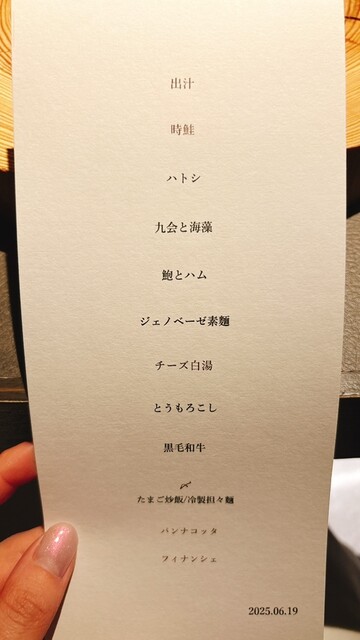 出汁
時鮭
ハトシ
九会と海藻
鮑とハム
ジェノベーゼ素麺
チーズ白湯
とうもろこし
黒毛和牛
〆
たまご炒飯/冷製担々麺
パンナコッタ
フィナンシェ
2025.06.19